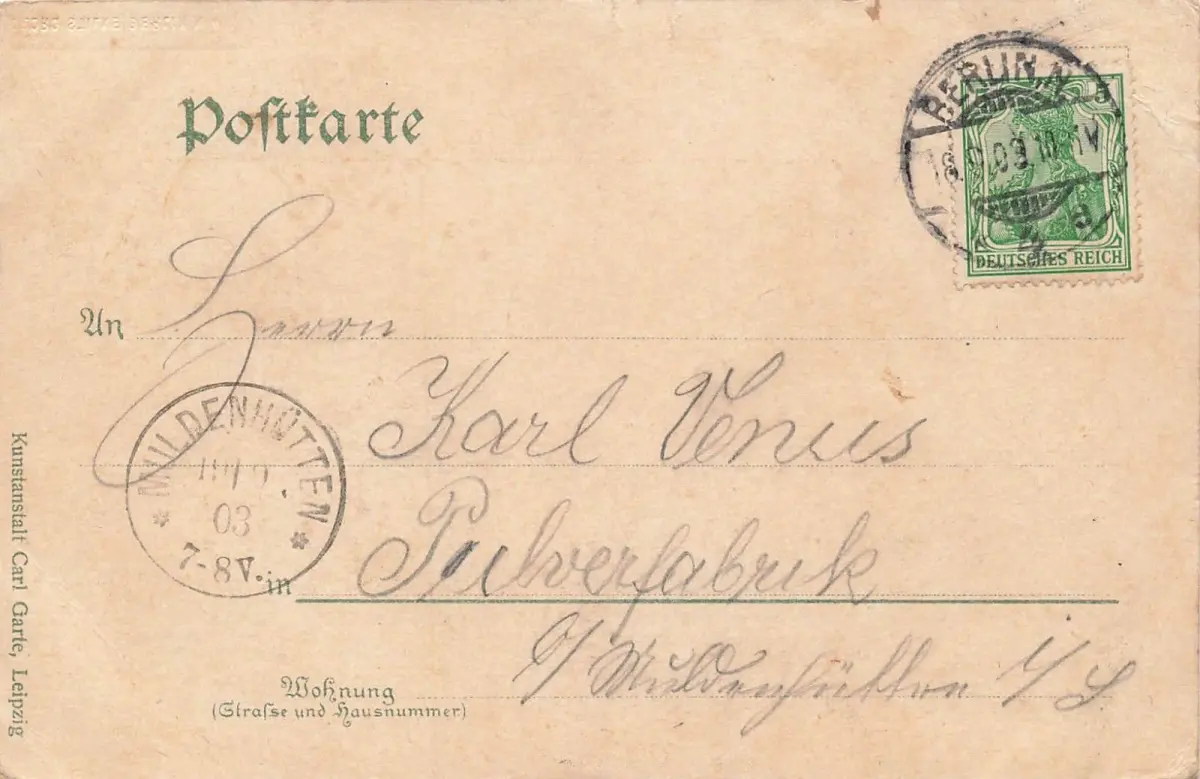 Postkarte
BERLIN N.
18.9.03.10-11V
4 a
5
DEUTSCHES REICH
An Herrn
Karl Venus
MULDENHÜTTEN
03
7-8V.
in Pulverfabrik
b/ Muldenhütten i/S
Wohnung
(Straſse und Hausnummer)
Kunstanstalt Carl Garte, Leipzig